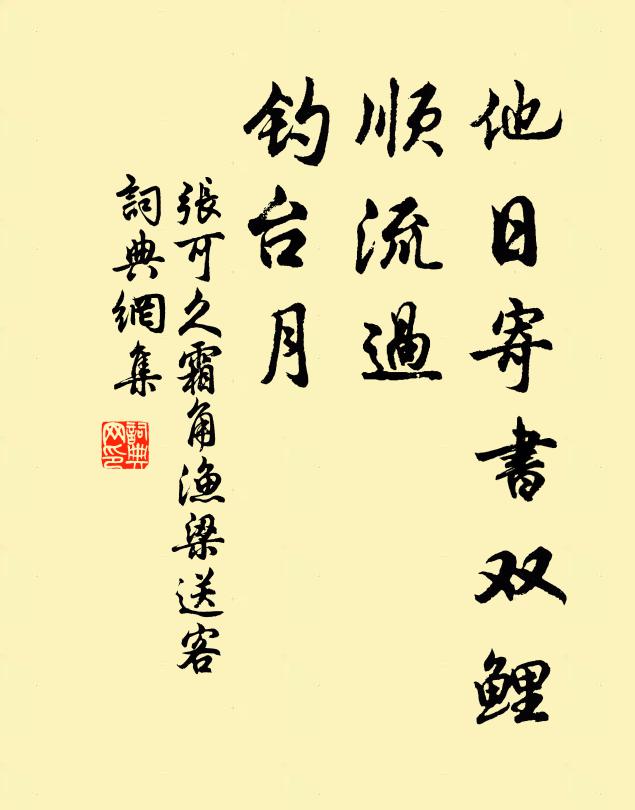 他日寄書双鲤
順流過
钓台月
張可久霜角渔梁送客
詞典網集
詞典網印